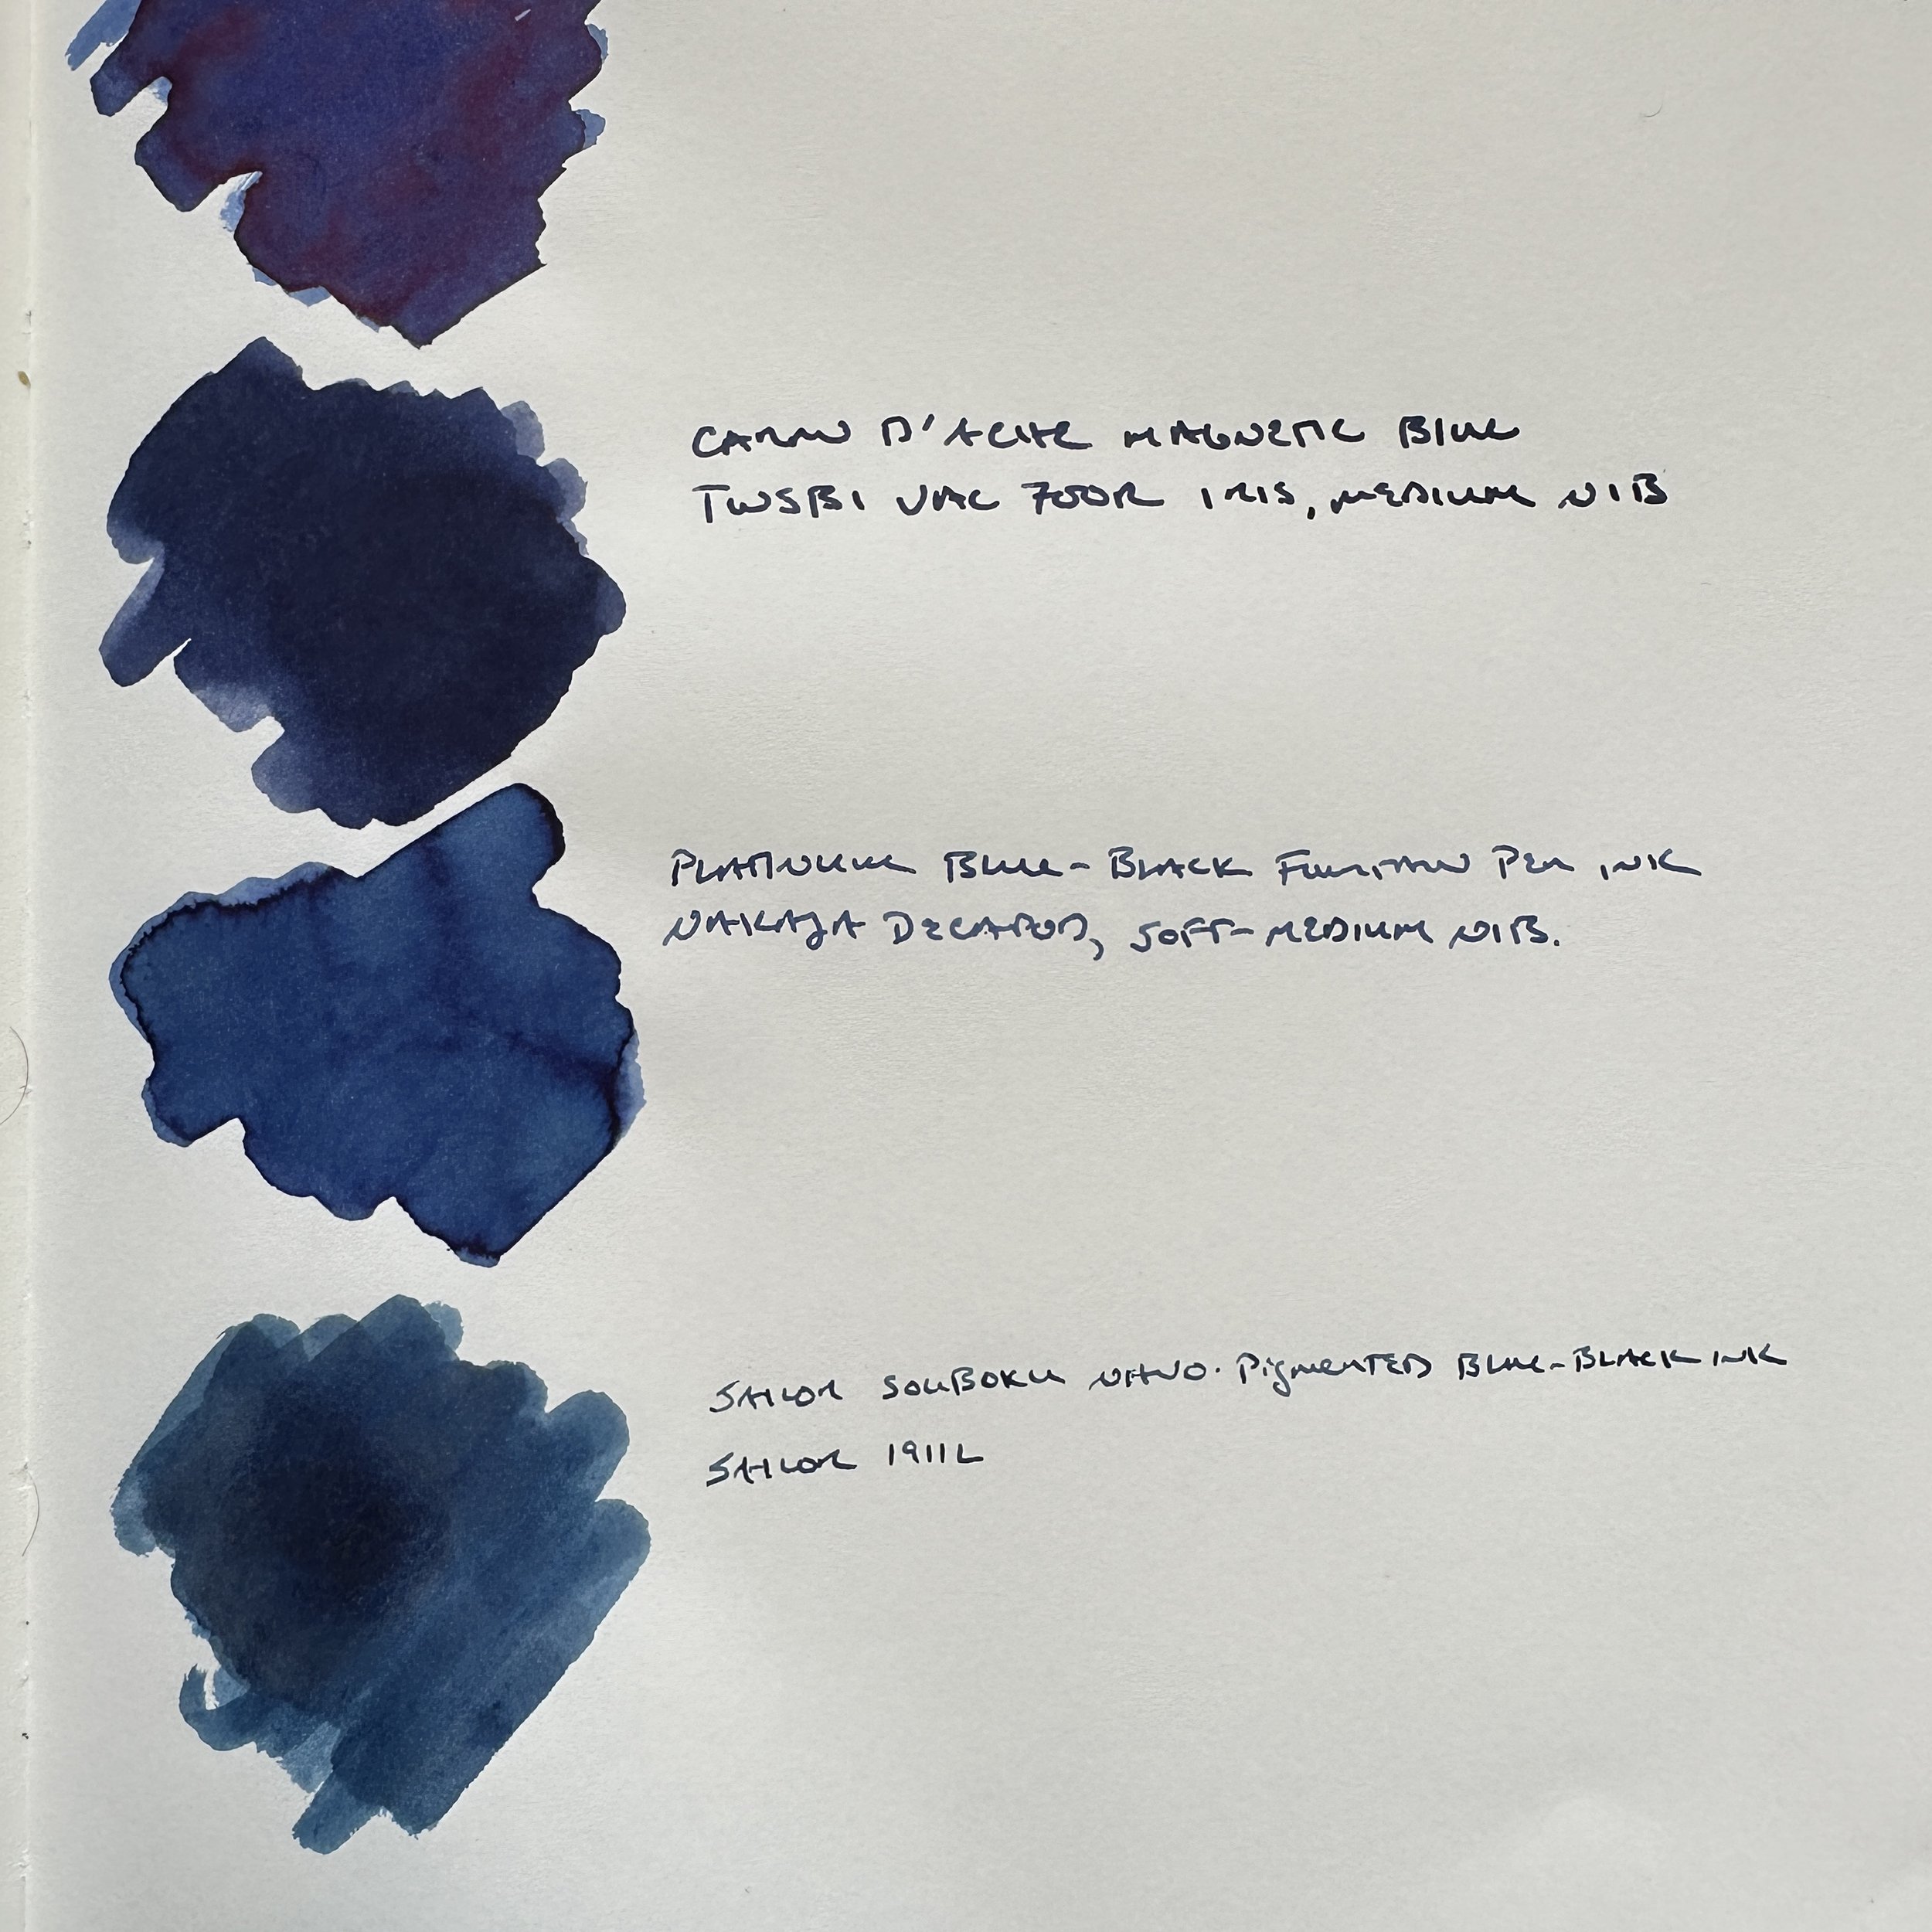 CARAN D'ACHE MAGNETIC BLUE
TWSBI VAC 700R IRIS, MEDIUM NIB
PLATINUM BLUE-BLACK FOUNTAIN PEN INK
NAKAYA DECAPOD, SOFT-MEDIUM NIB.
SAILOR SOUBOKU NANO-PIGMENTED BLUE-BLACK INK
SAILOR 1911L